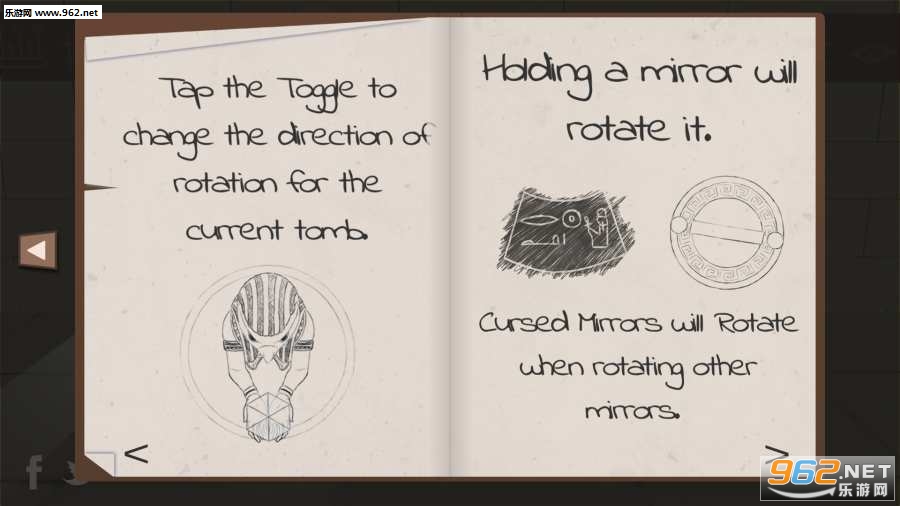 乐游网 www.962.net
Tap the Toggle to
change the direction of
rotation for the
current tomb.
Holding a mirror will
rotate it.
Cursed Mirrors will Rotate
when rotating other
mirrors.
<
>
f
962.NET
乐游网